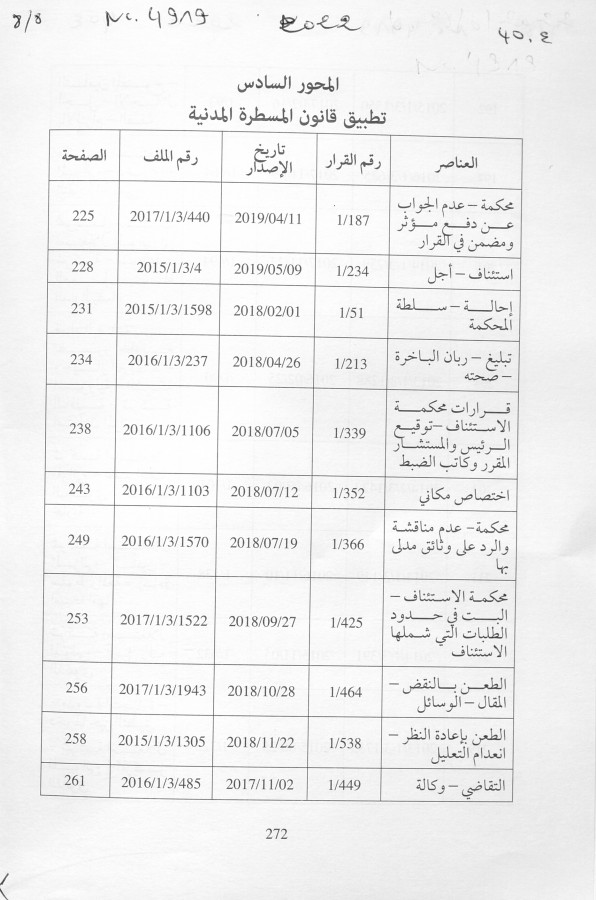 8/8 Nc. 4919 2022 40.4
المحور السادس
تطبيق قانون المسطرة المدنية
العناصر رقم القرار تاريخ الإصدار رقم الملف الصفحة
محكمة – عدم الجواب
عن دفع مؤثر
ومضمن في القرار
1/187 2019/04/11 2017/1/3/440 225
استئناف – أجل 1/234 2019/05/09 2015/1/3/4 228
إحالة – سلطة
المحكمة
1/51 2018/02/01 2015/1/3/1598 231
تبليغ – ربان الباخرة
– صحته
1/213 2018/04/26 2016/1/3/237 234
قرارات محكمة
الاستئناف – توقيع
الرئيس والمستشار
المقرر وكاتب الضبط
1/339 2018/07/05 2016/1/3/1106 238
اختصاص مكاني 1/352 2018/07/12 2016/1/3/1103 243
محكمة – عدم مناقشة
والرد على وثائق مدلى
بها
1/366 2018/07/19 2016/1/3/1570 249
محكمة الاستئناف –
البت في حدود
الطلبات التي شملها
الاستئناف
1/425 2018/09/27 2017/1/3/1522 253
الطعن بالنقض –
المقال – الوسائل
1/464 2018/10/28 2017/1/3/1943 256
الطعن بإعادة النظر –
انعدام التعليل
1/538 2018/11/22 2015/1/3/1305 258
التقاضي – وكالة 1/449 2017/11/02 2016/1/3/485 261
272